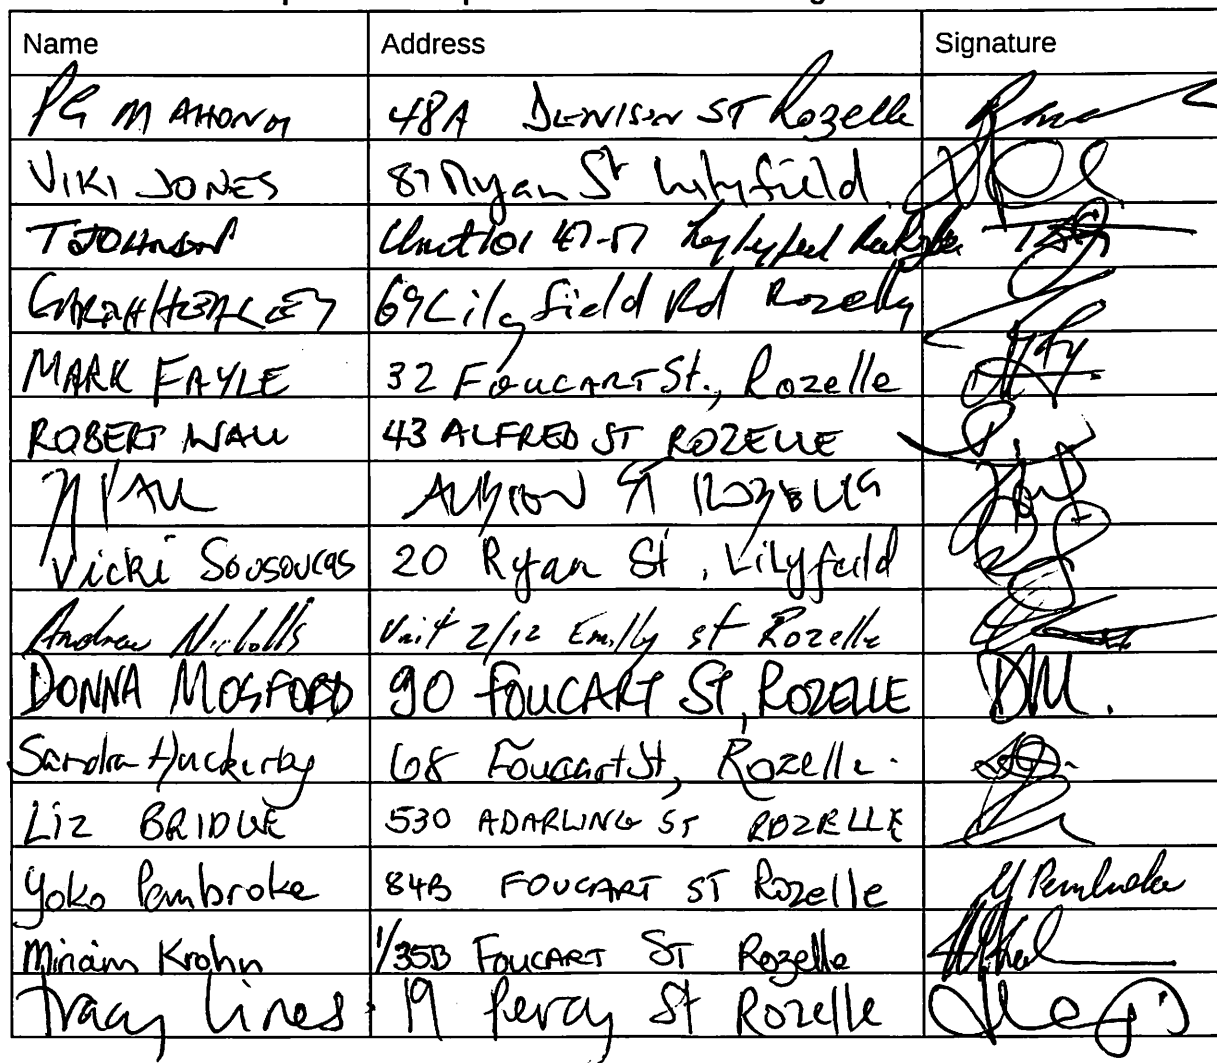 Name Address Signature
PG MAHONY 48A DENISON ST Rozelle
VIKI JONES 87 Ryan St Lilyfield
T JOHNSON 47-57
GARETH HEALEY 69 Lilyfield Rd Rozelle
MARK FAYLE 32 FOUCART St., Rozelle
ROBERT WALL 43 ALFRED ST ROZELLE
ST ROZELLE
Vicki Sousoucas 20 Ryan St, Lilyfeild
Andrew Nicholls Unit 2/12 Emilly st Rozelle
DONNA MOSFORD 90 FOUCART St, ROZELLE DM.
Sandra Huckerby 68 Foucart St, Rozelle.
Liz BRIDGE 530 A DARLING ST ROZELLE
Yoko Pembroke 84B FOUCART ST Rozelle Y Pembroke
Miriam Krohn 1/35B FOUCART ST Rozelle
Tracy Lines 19 Percy St Rozelle